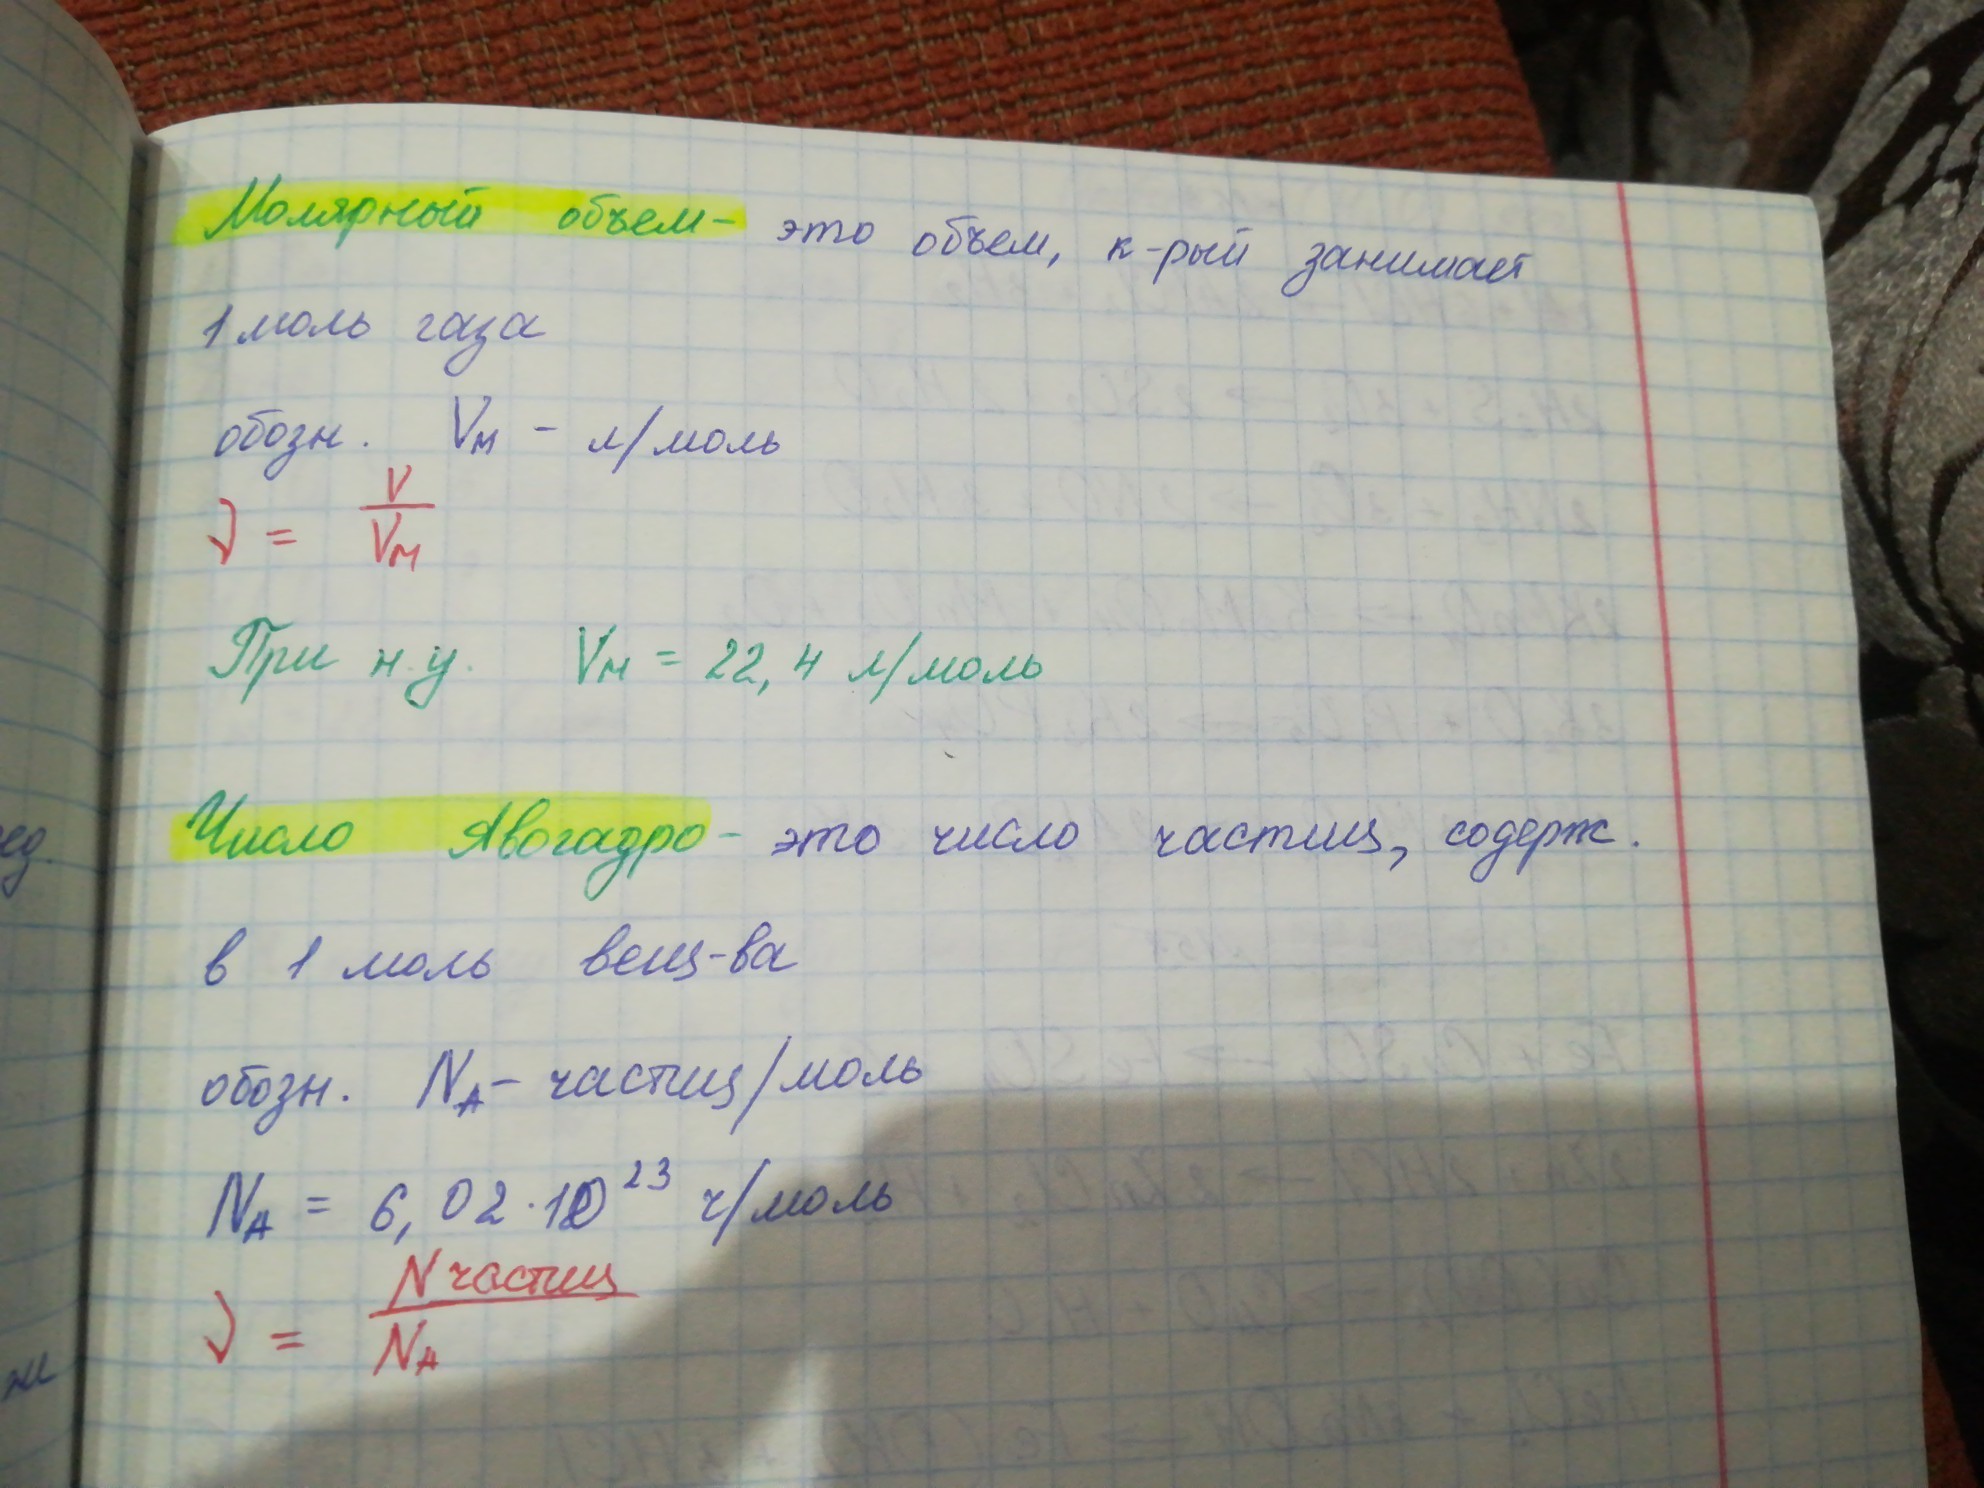 Молярный объем- это объем, к-рый занимает
1 моль газа
обозн. Vм - л/моль
ν = V/Vм
При н.у. Vм = 22,4 л/моль
Число Авогадро- это число частиц, содерж.
в 1 моль вещ-ва
обозн. NА- частиц/моль
NА = 6,02·10²³ ч/моль
ν = N частиц/NА